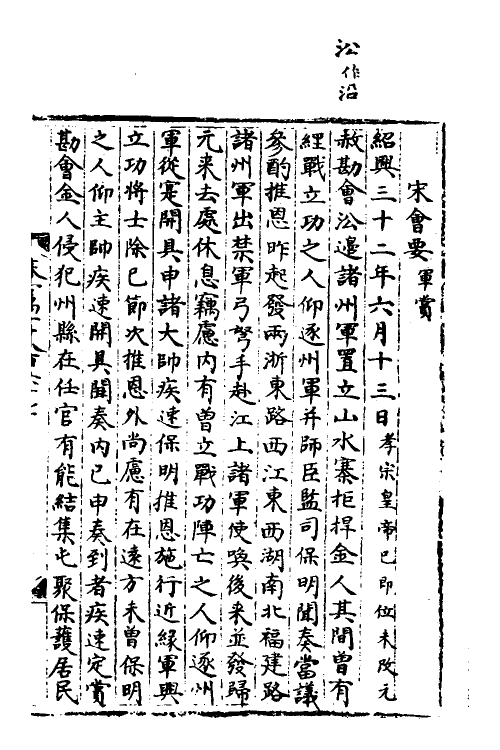 沿作沿
宋會要 軍賞
紹興三十二年六月十三日孝宗皇帝已即位未改元
赦勘會沿邊諸州軍置立山水寨拒捍金人其間曾有
經戰立功之人仰逐州軍并帥臣監司保明聞奏當議
參酌推恩昨起發兩浙東路西江東西湖南北福建路
諸州軍出禁軍弓弩手赴江上諸軍使喚後來並發歸
元來去處休息竊慮內有曾立戰功陣亡之人仰逐州
軍從寔開具申諸大帥疾速保明推恩施行近緣軍興
立功將士除已節次推恩外尚慮有在遠方未曾保明
之人仰主帥疾速開具聞奏內已申奏到者疾速定賞
勘會金人侵犯州縣在任官有能結集屯聚保護居民